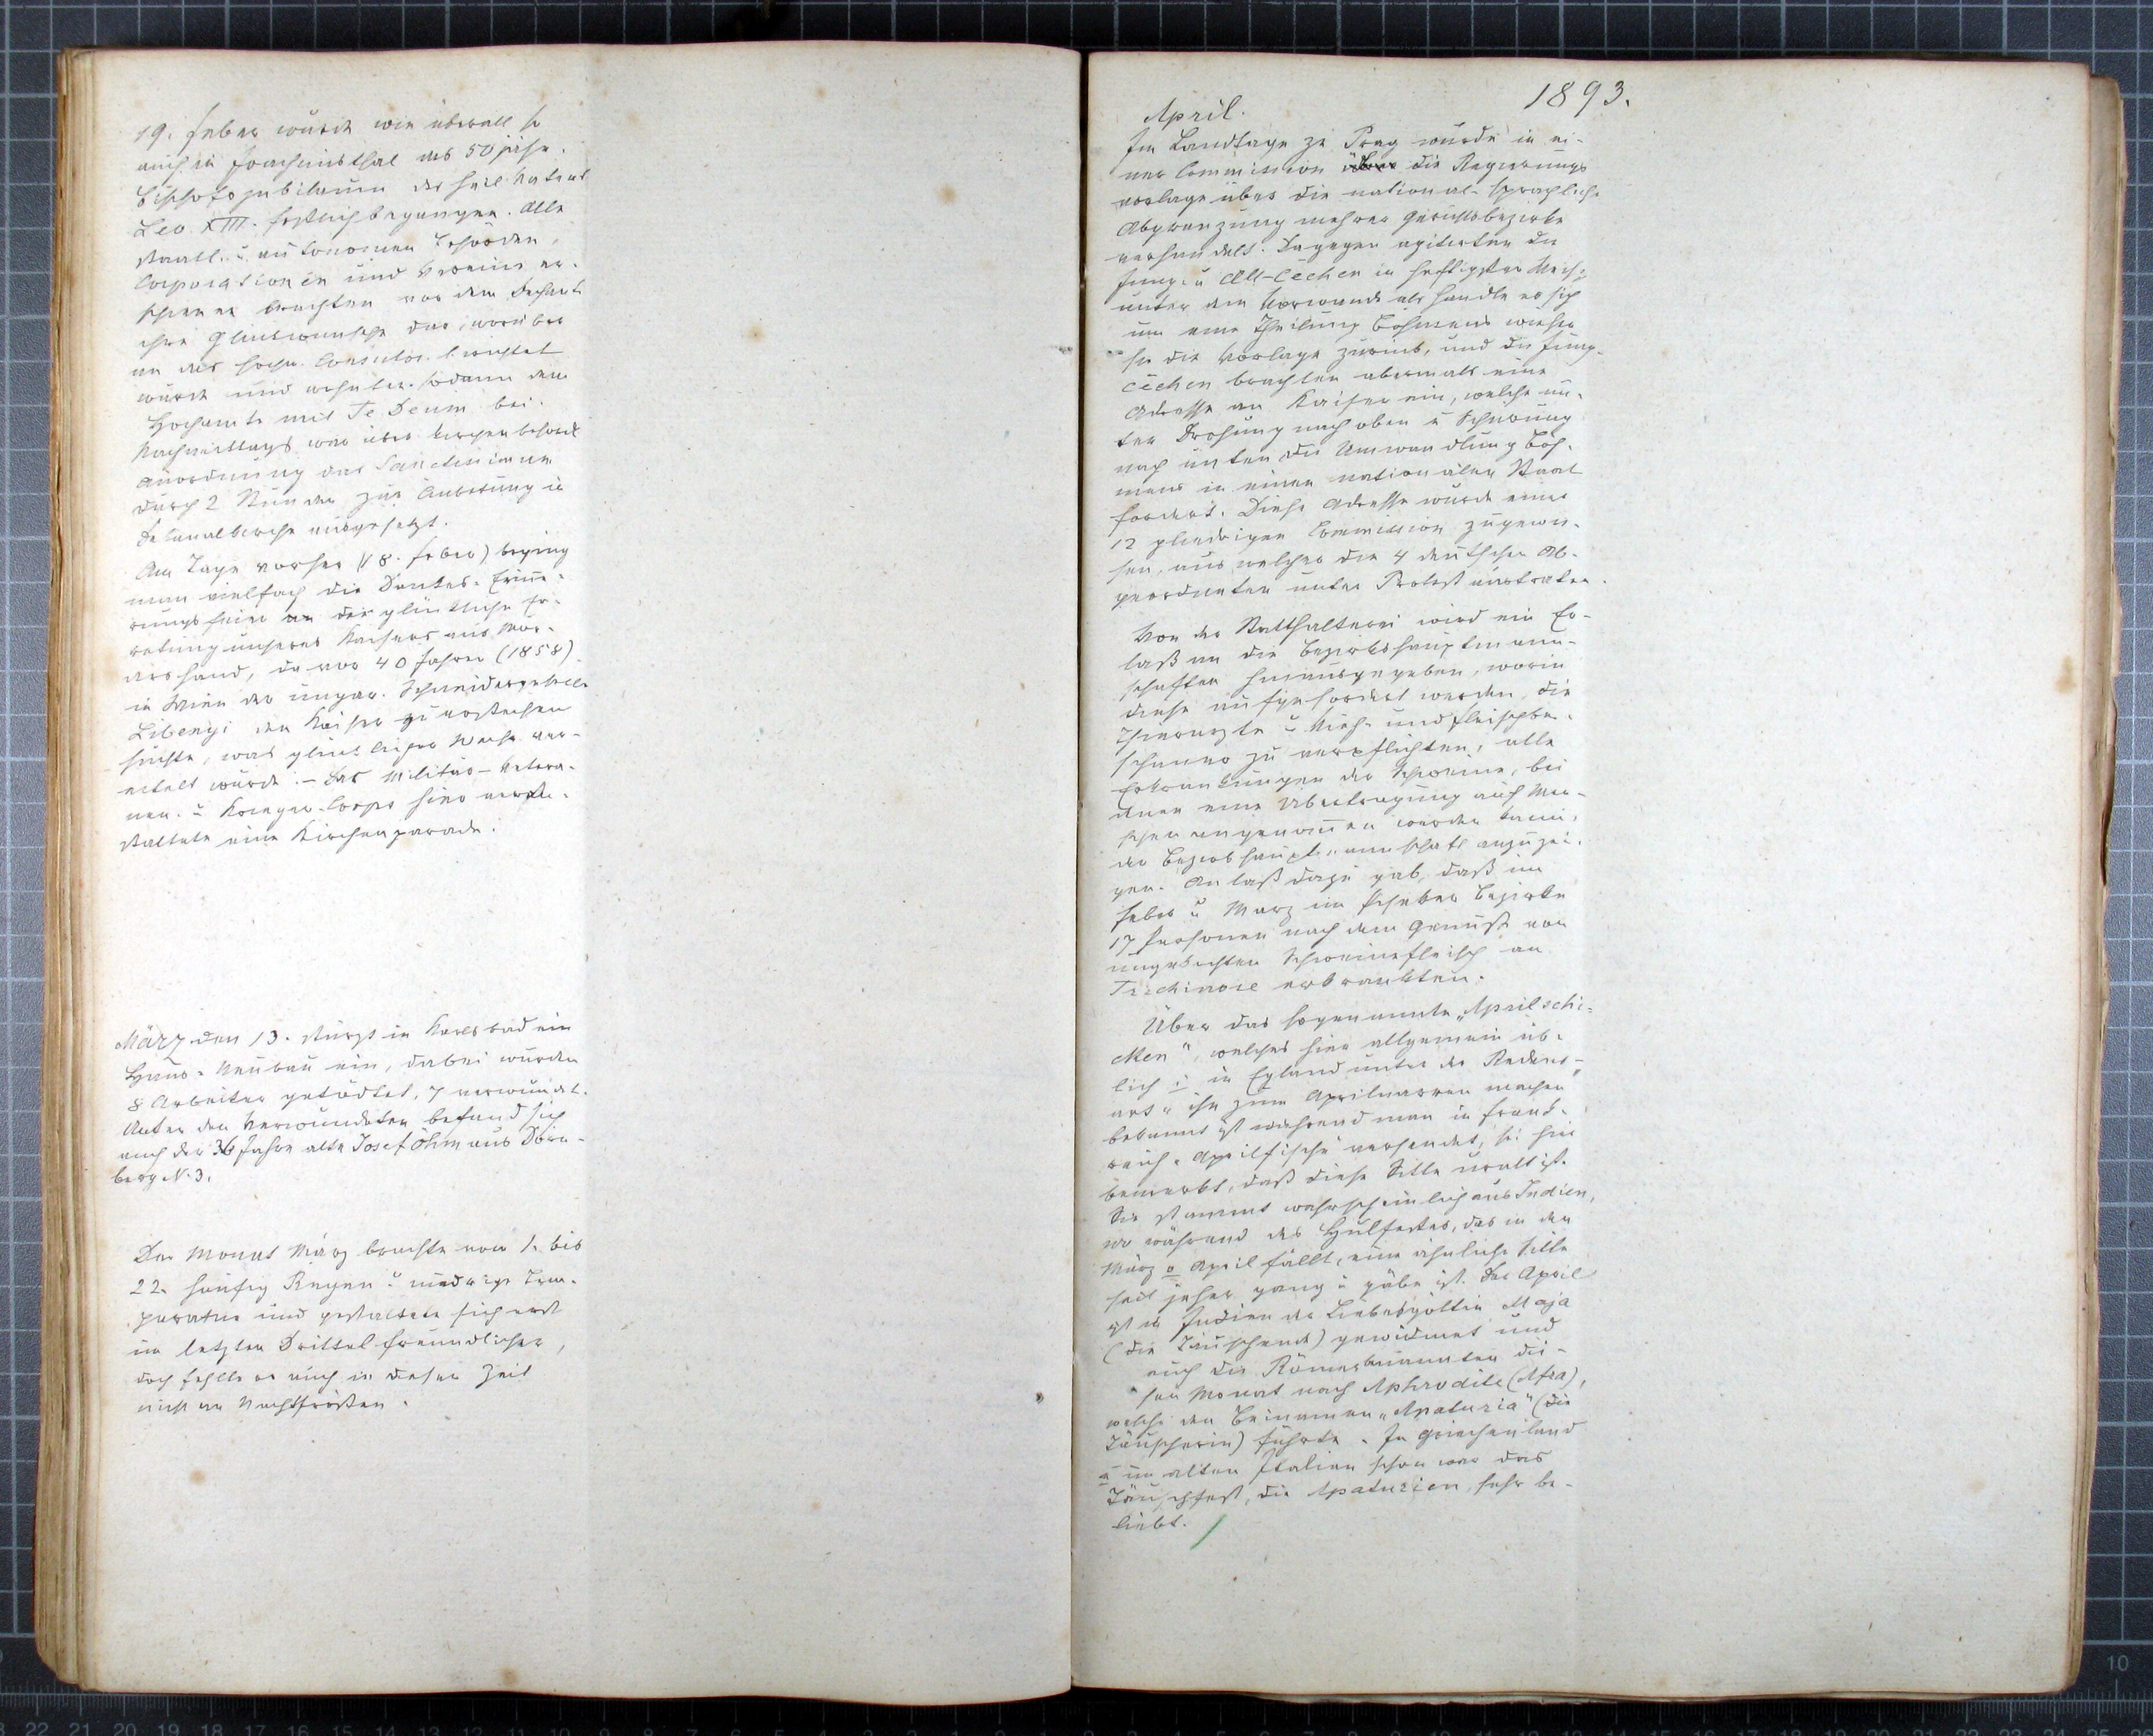 19. Feber wurde wie überall so
auch in Joachimsthal das 50 jähr.
Bischofsjubiläum des heil. Vaters
Leo XIII. festlich begangen. Alle
staatl. u. autonomen Behörden,
Corporationen und Vereine er-
schienen brachten vor dem Dechant
ihre Glückwünsche dar, worüber
an das hochw. Consistor. berichtet
wurde und wohnten sodann dem
Hochamte mit Te Deum bei.
Nachmittags war über kirchenbehördl.
Anordnung das Sanctissimum
durch 2 Stunden zur Anbetung in
Dekanalkirche ausgesetzt.
Am Tage vorher (18. Feber) beging
man vielfach die Dankes-Erinne-
rungsfeier an die glückliche Er-
rettung unseres Kaisers aus Mör-
dershand, da vor 40 Jahren (1858)
in Wien der ungar. Schneidergeselle
Libenyi den Kaiser zu erstechen
suchte, was glücklicher Weise ver-
eitelt wurde. – Das Militär-Vetera-
nen- u. Krieger-Corps hier veran-
staltete eine Kirchenparade.
März den 13. stürzt in Karlsbad ein
Haus-Neubau ein, dabei wurden
8 Arbeiter getödtet, 7 verwundet.
Unter den Verwundeten befand sich
auch der 36 Jahre alte Josef Öhm aus Dürn-
berg N. 3.
Der Monat März brachte vom 1. bis
22. häufig Regen u. niedrige Tem-
peratur und gestaltete sich erst
im letzten Drittel freundlicher,
doch fehlte es auch in dieser Zeit
nicht an Nachtfrösten.
1893.
April.
Im Landtage zu Prag wurde in ei-
ner Commission über die Regierungs
vorlage über die national-sprachliche
Abgrenzung mehrer Gerichtsbezirke
verhandelt. Dagegen agitirten die
Jung- u Alt-Čechen in heftigster Weise
unter dem Vorwande als handle es sich
um eine Theilung Böhmens wiesen
sie die Vorlage zurück, und die Jung-
čechen brachten abermals eine
Adresse an Kaiser ein, welche un-
ter Drohung nach oben u Schürung
nach unten die Umwandlung Böh-
mens in einen nationalen Staat
fordert. Diese Adresse wurde einer
12 gliedrigen Commission zugewie-
sen, aus welcher die 4 deutschen Ab-
geordneten unter Protest austraten.
Von der Statthalterei wird ein Er-
laß an die Bezirkshauptmann-
schaften hinausgegeben, worin
diese aufgefordert werden, die
Thierärzte u Vieh- und Fleischbe-
schauer zu verpflichten, alle
Erkrankungen der Schweine, bei
denen eine Übertragung auf Men-
schen angenommen werden kann,
der Bezirkshauptmannschaft anzuzei-
gen. Anlaß dazu gab, daß im
Feber u März im Ascher Bezirke
17 Personen nach dem Genuß von
ungekochten Schweinefleisch an
Trichinose erkrankten.
Über das sogenannte „Aprilschi-
cken", welches hier allgemein üb-
lich u in Egland unter der Redens-
art „ihn zum Aprilnarren machen"
bekannt ist während man in Frank-
reich „Aprilfische" versendet, sei hier
bemerkt, daß diese Sitte uralt ist.
Sie stammt wahrscheinlich aus Indien,
wo während des Hulfestes, das in den
März o April fällt, eine ähnliche Sitte
seit jeher gang u gäbe ist. Der April
ist in Indien der Liebesgöttin Maja
(die Täuschende) gewidmet und
auch die Römer benannten die-
sen Monat nach Aphrodite (Afra),
welche den Beinamen „Apaturia" (die
Täuscherin) führte. In Griechenland
u im alten Italien schon war das
Täuschfest, die Apaturien, sehr be-
liebt.